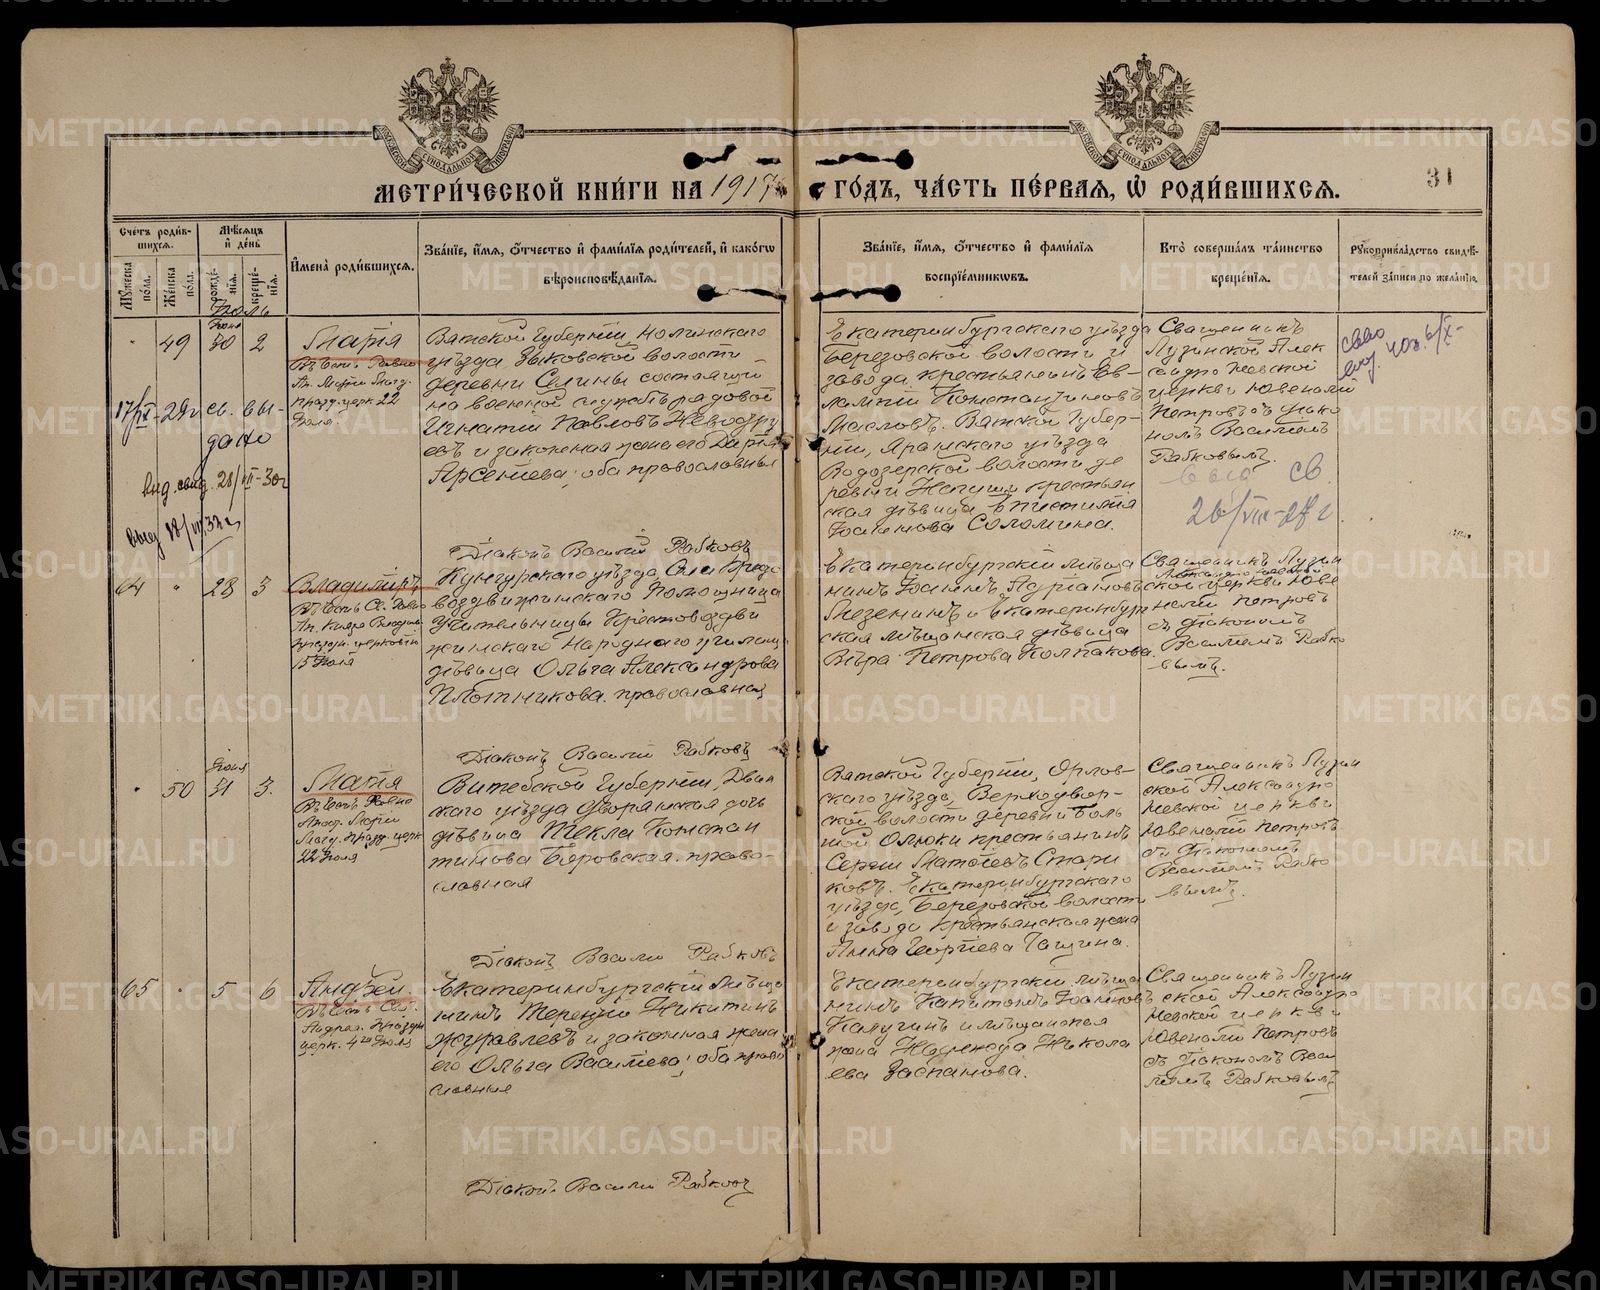 МЕТРИ́ЧЕСКОЙ КНИ́ГИ НА 1917
ГО́ДЪ, ЧА́СТЬ ПЕ́РВАЯ, Ѡ҆ РОДИ́ВШИХСЯ.
31
Сче́тъ роди́вшихся.
Му́жеска по́ла.
Же́нска по́ла.
Мѣ́сяцъ и҆ де́нь
рожде́нїя.
креще́нїя.
И҆мена̀ роди́вшихся.
Зва́нїе, и҆́мя, ѻ҆́тчество и҆ фами́лїя роди́телей, и҆ како́гѡ
вѣроисповѣ́данїя.
Зва́нїе, и҆́мя, ѻ҆́тчество и҆ фами́лїя
воспрїе́мниковъ.
Кто̀ соверша́лъ та́инство
креще́нїя.
Рꙋкоприкла́дство свидѣ́-
телей за́писи по жела́нїю.
Іюль
49
Іюня
30
2
Марія
Въ честь Равно
Ап. Маріи Магд.
празд. церк 22
Іюля.
Вятской Губерніи, Нолинскаго
уѣзда Зыковской волости
деревни Селины состоящій
на военной службѣ рядовой
Игнатій Павловъ
и законная жена его Дарія
Арсеніева; оба православные
Діаконъ Василій Рабковъ
Екатеринбургскаго уѣзда
Березовской волости и
завода крестьянинъ Ев-
лампій Константиновъ
Масловъ. Вятской Губер-
ніи, Яранскаго уѣзда
Водозерской волости де
ревни крестьян
ская дѣвица Епистимія
Іоаннова Соломина.
Священникъ
Лузинской Алек
сандро Невской
церкви Ювеналій
Петровъ съ діако
номъ Василіемъ
Рабковымъ.
выд св
26/VIII-28 г
17/IX-29г св. вы-
дано
Выд. свид. 28/VII-30г
выд 18/VII 32 г
64
28
3
Владиміръ
Въ честь Св. Равно
Ап. Князя Владим
праздн. церковію
15 Іюля
Кунгурскаго уѣзда, Села Кресто
воздвиженскаго Помощница
Учительницы Крестовоздви
женскаго Народнаго училища
дѣвица Ольга Александрова
Плотникова. православная
Діаконъ Василій Рабковъ
Екатеринбургскій мѣща
нинъ Іоаннъ Адріановъ
Мезенинъ и Екатеринбург
ская мѣщанская дѣвица
Вѣра Петрова Колпакова.
Священникъ Лузин
Александро Невской
ской церкви Юве
налій Петровъ
съ діакономъ
Василіемъ Рабко
вымъ.
50
Іюня
31
3.
Марія
Въ честь Равно
Апост. Маріи
Магд. празд. церк
22 Іюля
Витебской Губерніи, Двин
скаго уѣзда дворянская дочь
дѣвица Текла Констан
тинова Боровская. право-
славная
Діаконъ Василій Рабковъ
Вятской Губерніи, Орлов-
скаго уѣзда, Верходвор-
ской волости деревни Боль
шой Олюки крестьянинъ
Сергій Матѳіевъ Стари
ковъ. Екатеринбургскаго
уѣзда, Березовской волости
и завода крестьянская жена
Анна Георгіева
Священникъ Лузин
ской Александро
Невской церкви
Ювеналій Петровъ
съ діакономъ
Василіемъ Рабко
вымъ.
65
5
6
Андрей.
Въ честь Св.
Андрея. праздн
церк. 4го Іюля
Екатеринбургскій мѣща
нинъ Терентій Никитинъ
Журавлевъ и законная жена
его Ольга Василіева; оба право
славные
Діаконъ Василій Рабковъ
Екатеринбургскій мѣща
нинъ Капитонъ Іоанновъ
Калугинъ и мѣщанская
жена Надежда Никола
ева Заспанова.
Священникъ Лузин
ской Александро
Невской церкви
Ювеналій Петровъ
съ діакономъ Васи
ліемъ Рабковымъ
METRIKI.GASO-URAL.RU